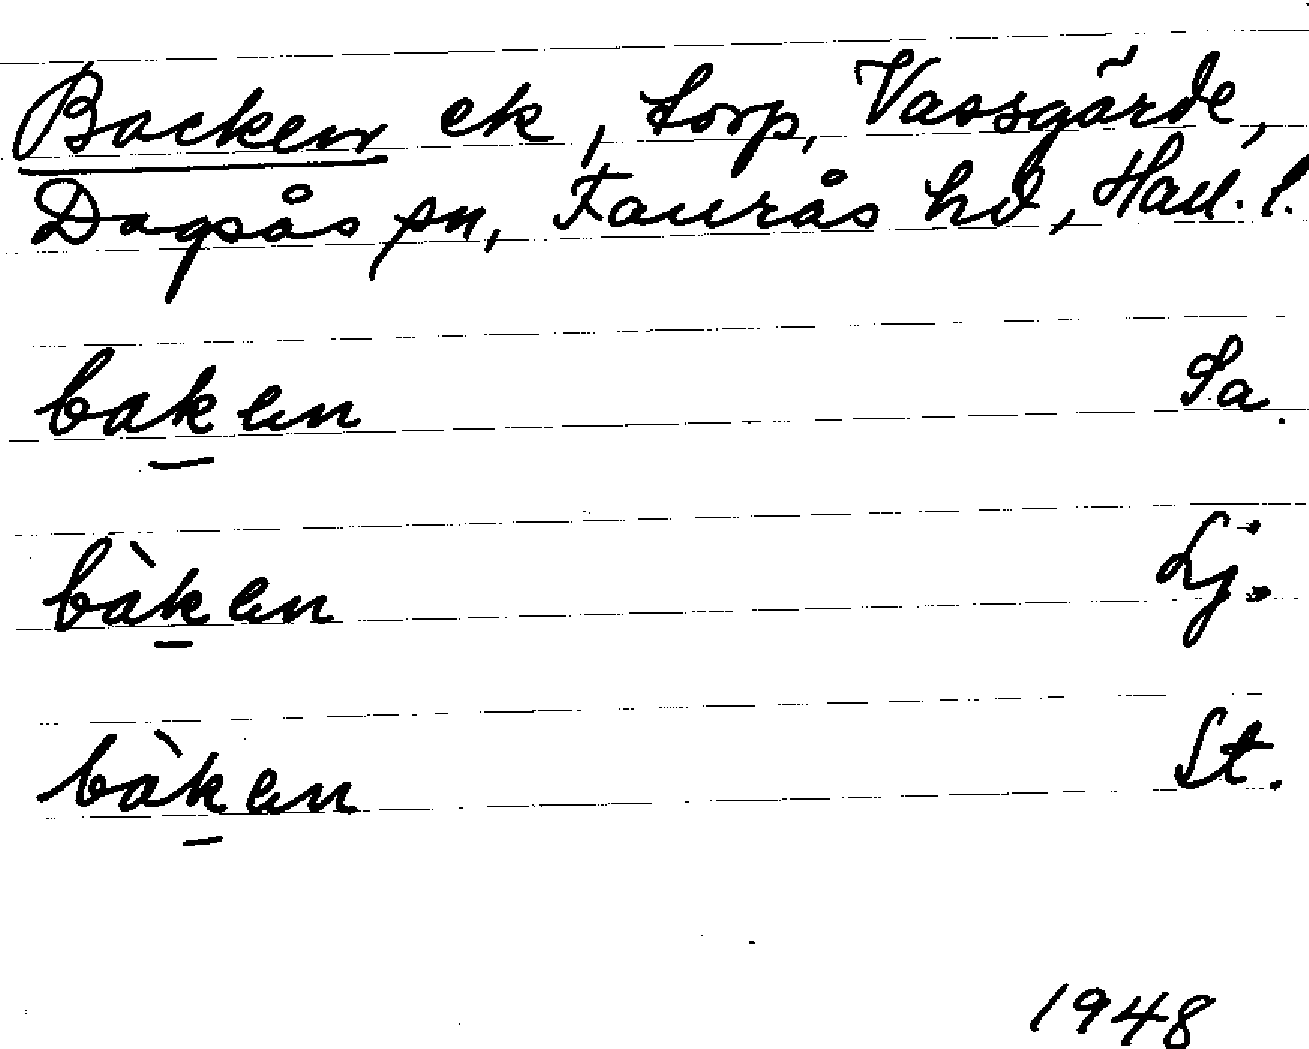 Backen ek, torp, Vassgärde,
Dagsås sn, Faurås hd, Hall. l.
baken Sa.
bàken Lj.
bàken St.
1948